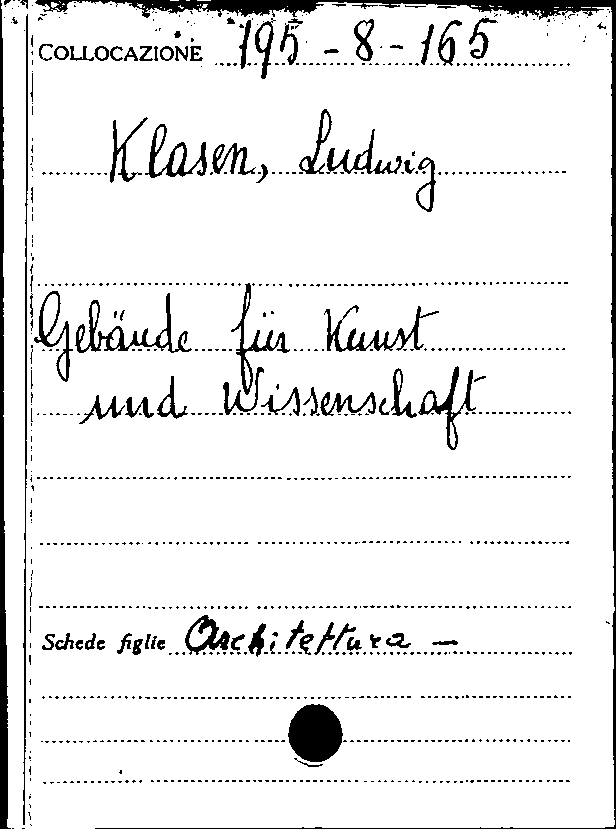 COLLOCAZIONE 195-8-165
Klasen, Ludwig
Gebäude für Kunst
und Wissenschaft
Schede figlie Architettura -